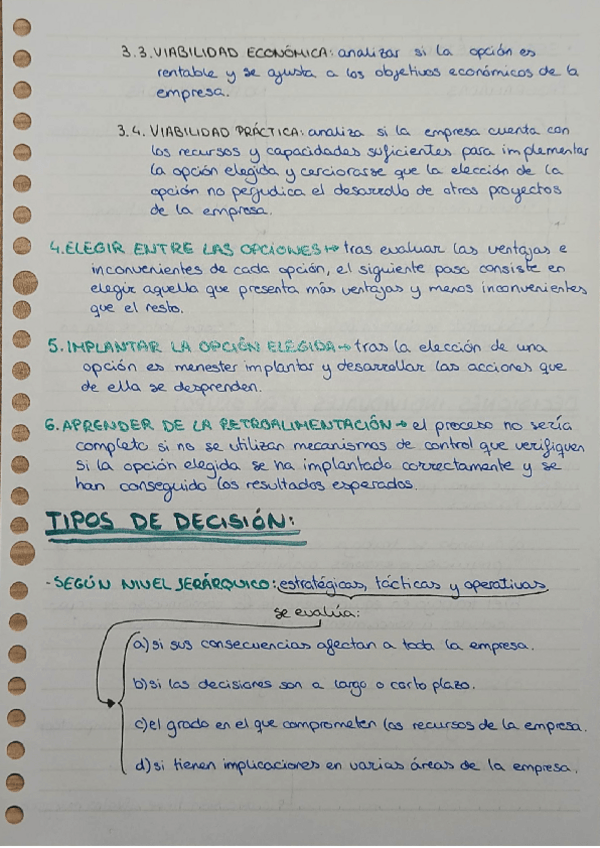 3.3. VIABILIDAD ECONÓMICA: analizar si la opción es
rentable y se ajusta a los objetivos económicos de la
empresa.
3.4. VIABILIDAD PRÁCTICA: analiza si la empresa cuenta con
los recursos y capacidades suficientes para implementar
la opción elegida y cerciorarse que la elección de la
opción no perjudica el desarrollo de otros proyectos
de la empresa.
4. ELEGIR ENTRE LAS OPCIONES → tras evaluar las ventajas e
inconvenientes de cada opción, el siguiente paso consiste en
elegir aquella que presenta más ventajas y menos inconvenientes
que el resto.
5. IMPLANTAR LA OPCIÓN ELEGIDA → tras la elección de una
opción es menester implantar y desarrollar las acciones que
de ella se desprenden.
6. APRENDER DE LA RETROALIMENTACIÓN → el proceso no sería
completo si no se utilizan mecanismos de control que verifiquen
si la opción elegida se ha implantado correctamente y se
han conseguido los resultados esperados.
TIPOS DE DECISIÓN:
- SEGÚN NIVEL JERÁRQUICO: estratégicas, tácticas y operativas
se evalúa:
a) si sus consecuencias afectan a toda la empresa.
b) si las decisiones son a largo o corto plazo.
c) el grado en el que comprometen los recursos de la empresa.
d) si tienen implicaciones en varias áreas de la empresa.